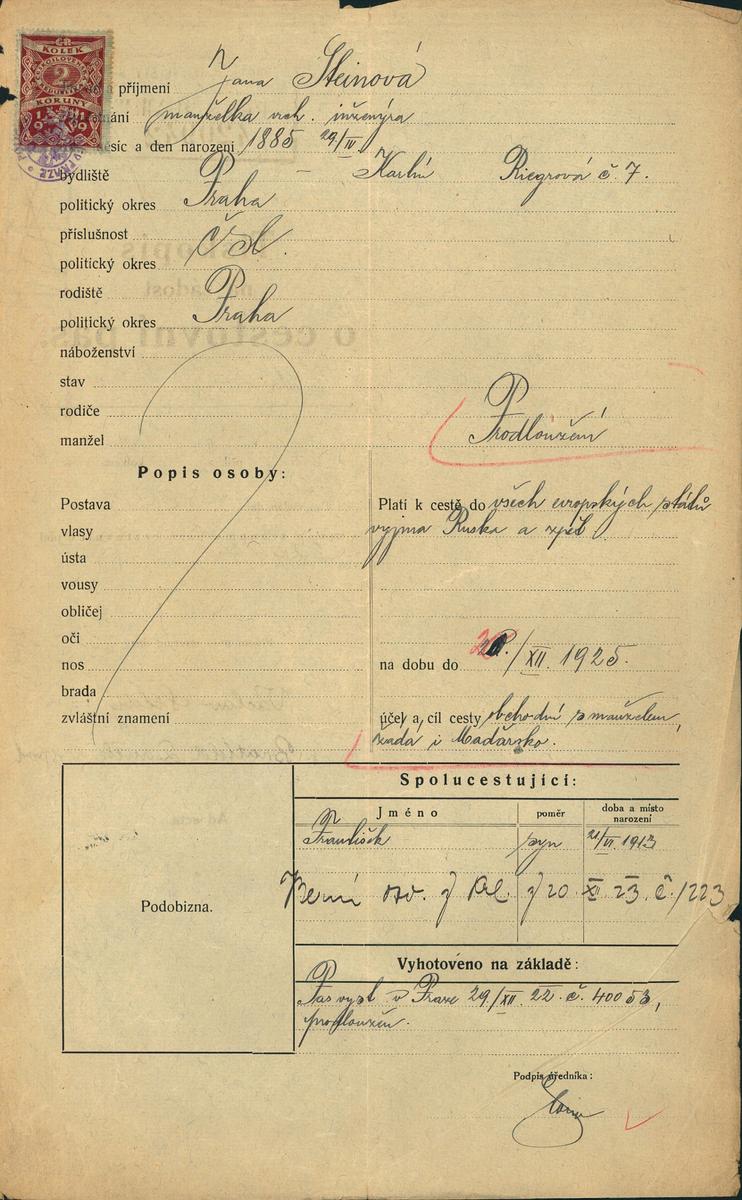 ČR
KOLEK
2
KORUNY
příjmení Jana Steinová
manželka úřed. inženýra
a den narození 1885 29/IV
bydliště Praha – Karlín Riegrova č. 7.
politický okres
příslušnost Čsl.
politický okres
rodiště Praha
politický okres
náboženství
stav
rodiče
manžel
Prodloužení
Popis osoby:
Postava
vlasy
ústa
vousy
obličej
oči
nos
brada
zvláštní znamení
Platí k cestě do všech evropských států
vyjma Ruska a zpět
na dobu do /XII. 1925.
účel a cíl cesty obchodní s manželem,
žádá i Maďarsko.
Spolucestující:
Jméno poměr doba a místo narození
František syn 21/VI 1913
Berní osv. z 20 XII 23 č./223
Podobizna.
Vyhotoveno na základě:
Pas vyst. v Praze 29/XII. 22. č. 40053,
prodloužen.
Podpis úředníka: